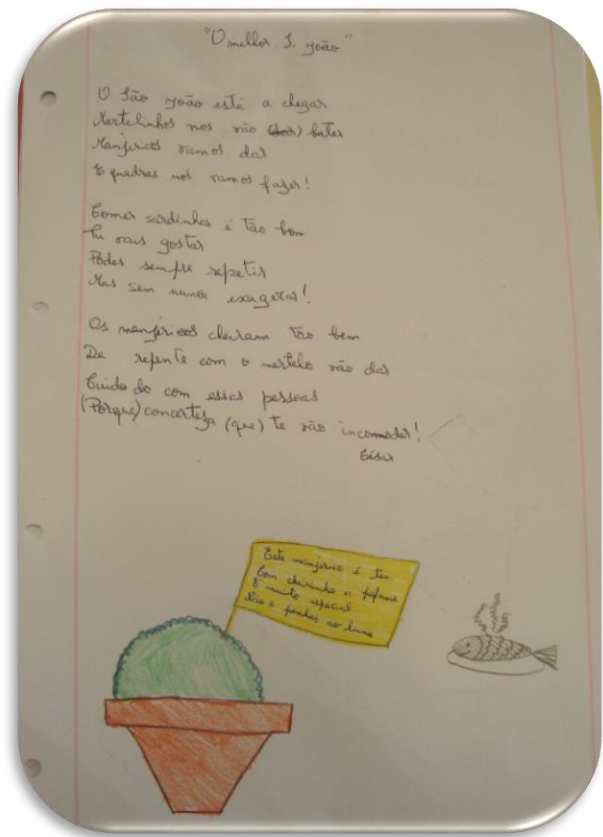 "O melhor S. João"
O São João está a chegar
Martelinhos nos vão (dar) bater
Manjericos vamos dar
E quadras nós vamos fazer!
Comer sardinhas é tão bom
Tu vais gostar
Podes sempre repetir
Mas sem nunca exagerar!
Os manjericos cheiram tão bem
De repente com o martelo vão dar
Cuidado com essas pessoas
(Porque) concerteza (que) te vão incomodar!
César
Este manjerico é teu
Com cheirinho a
É muito especial
Não o ponhas ao lume